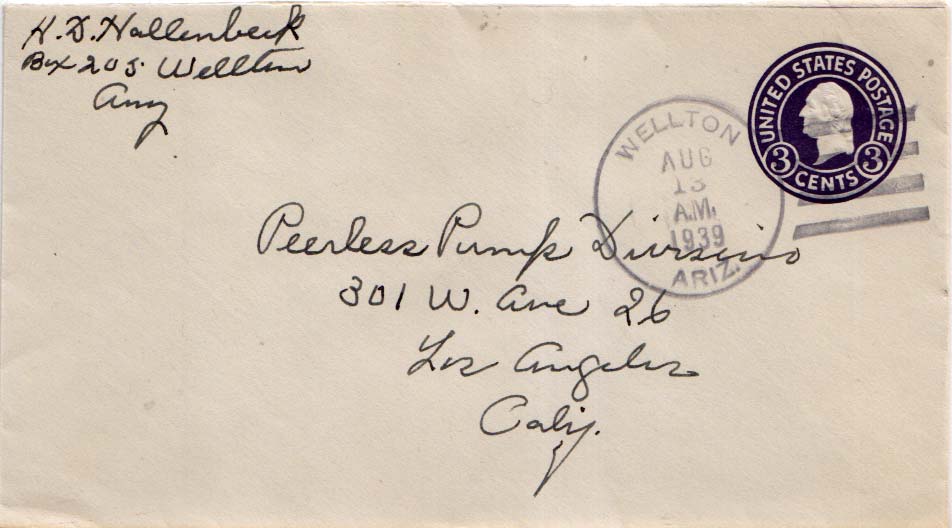 H. D. Hallenbeck
Box 205 Wellton
Ariz
UNITED STATES POSTAGE
3 CENTS 3
WELLTON
AUG
13
A.M.
1939
ARIZ.
Peerless Pump Division
301 W. Ave 26
Los Angeles
Calif.